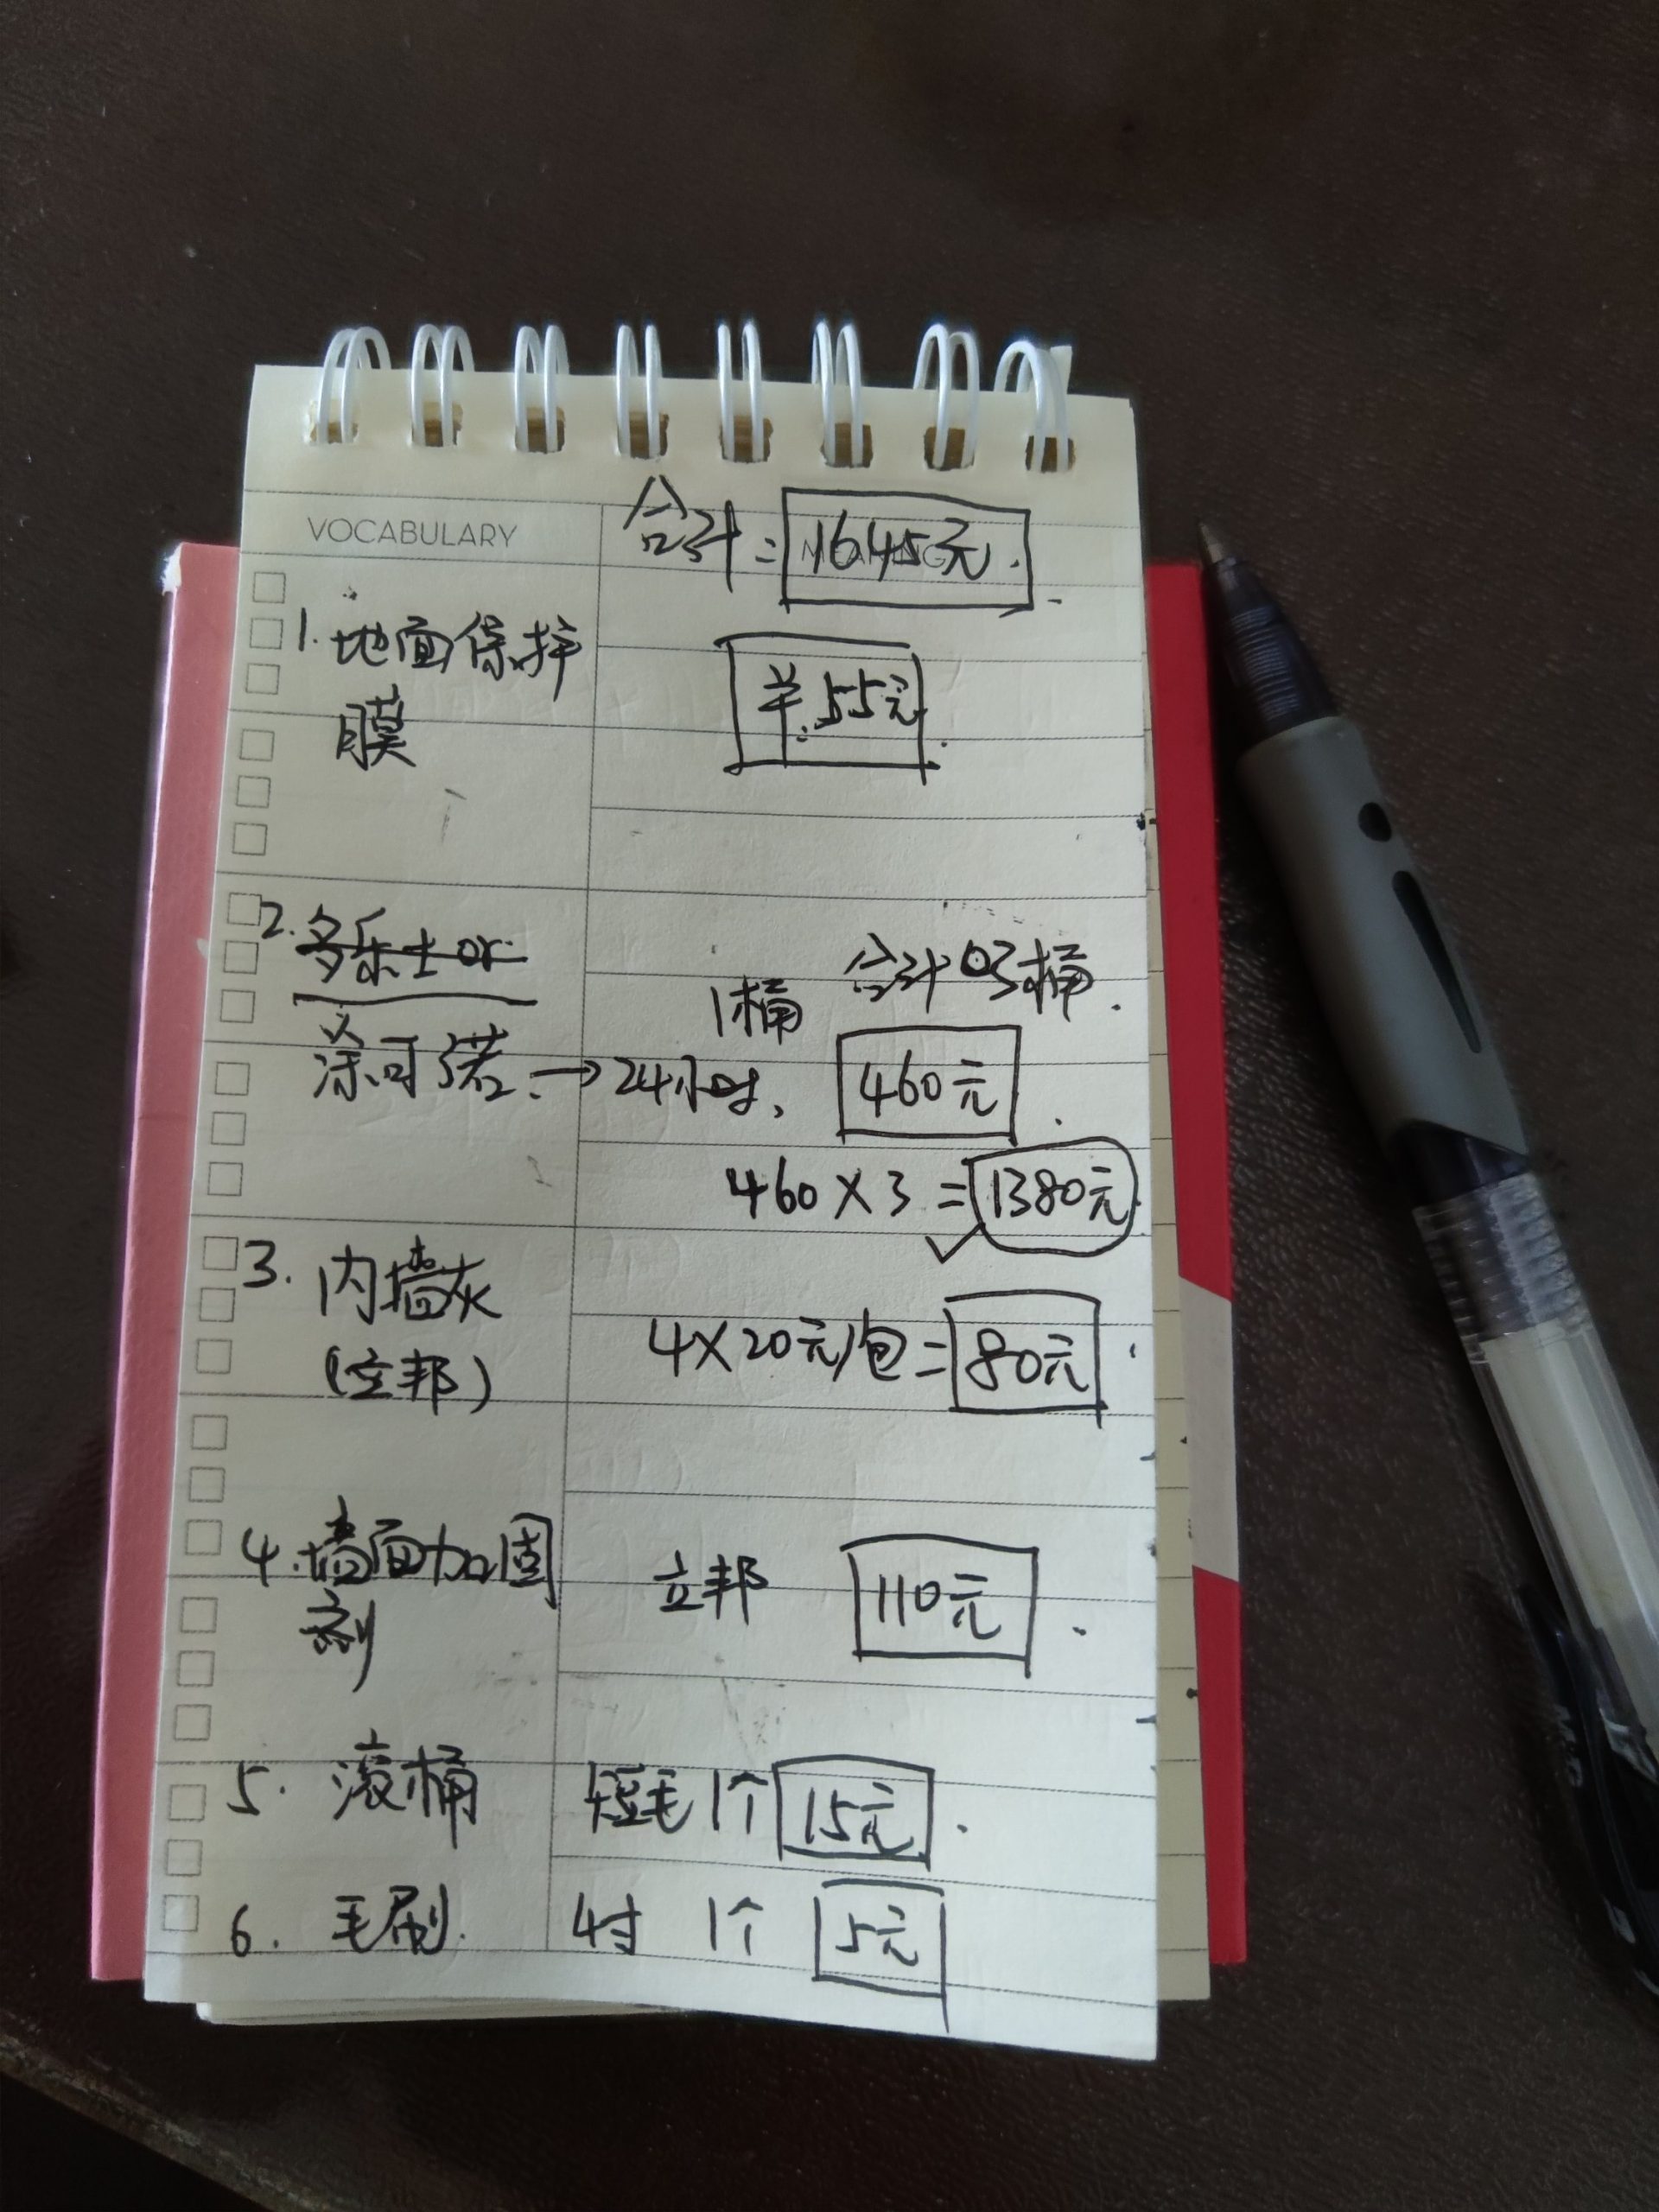 VOCABULARY
合计=1645元.
1.地面保护
膜
羊.55元
2.多乐士or
1桶 合计03桶.
涂可诺.→24小时、 460元
460×3=1380元
3.内墙灰
(立邦)
4×20元/包=80元
4.墙面加固
剂
立邦 110元
5.滚桶 短毛1个 15元.
6.毛刷. 4寸 1个 5元